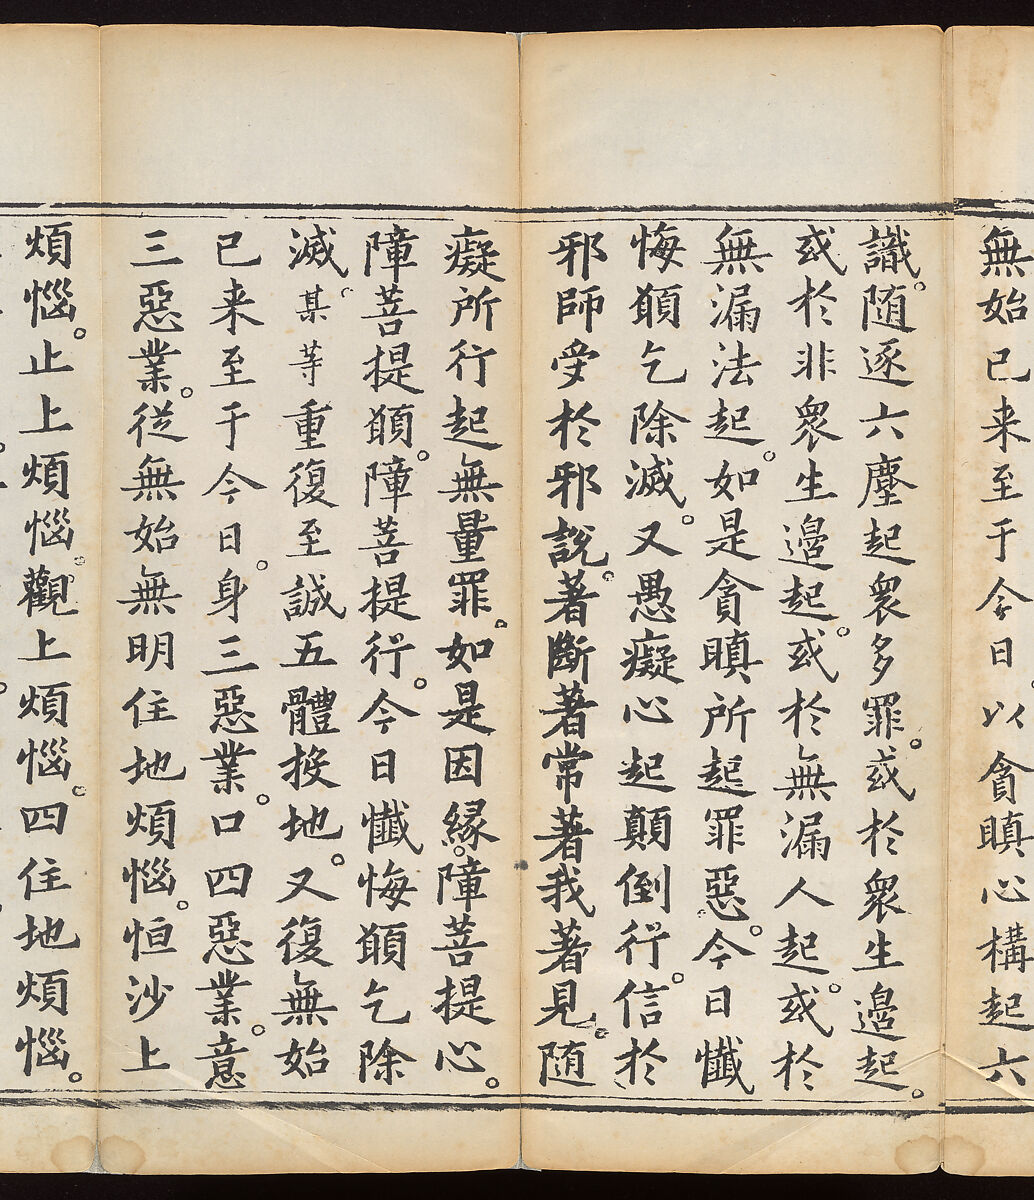 無始已来至于今日以貪瞋心構起六
識。随逐六塵起衆多罪。或於衆生邉起。
或於非衆生邉起。或於無漏人起。或於
無漏法起。如是貪瞋所起罪惡。今日懺
悔願乞除滅。又愚癡心起顛倒行。信於
邪師受於邪説。著斷著常著我著見。随
癡所行起無量罪。如是因縁。障菩提心。
障菩提願。障菩提行。今日懺悔願乞除
滅。某等重復至誠五體投地。又復無始
已来至于今日。身三惡業。口四惡業。意
三惡業。從無始無明住地煩惱。恒沙上
煩惱。止上煩惱。觀上煩惱。四住地煩惱。